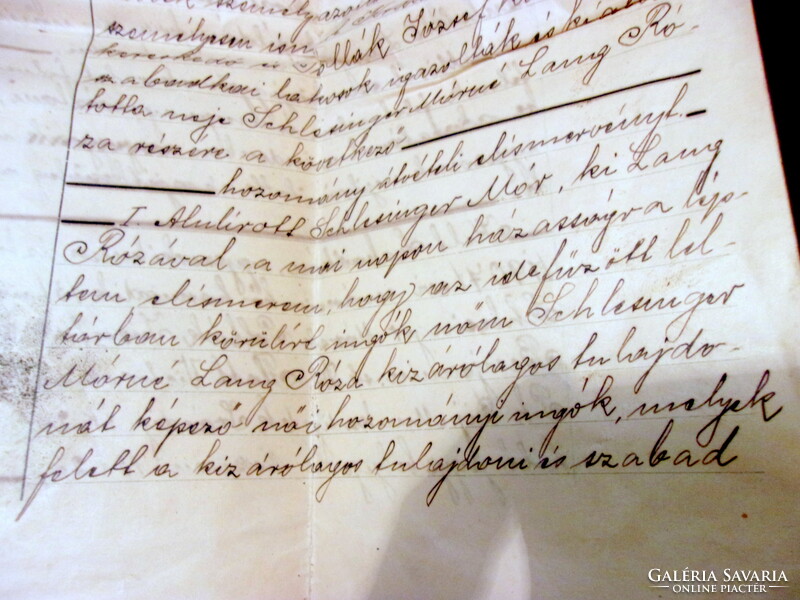 személyesen ism
Pollák József
szabadkai lakosok igazolták és
totta neje Schlesinger Mórné Lang Ró-
za részére a következő
hozomány átvételi elismervényt.
I Alulírott Schlesinger Mór, ki Lang
Rózával, a mai napon házasságra lép-
tem elismerem, hogy az idefűzött lel-
tárban körülírt ingók nőm Schlesinger
Mórné Lang Róza kizárólagos tulajdo-
nát képező női hozományi ingók, melyek
felett a kizárólagos tulajdoni és szabad
GALÉRIA SAVARIA
ONLINE PIACTÉR